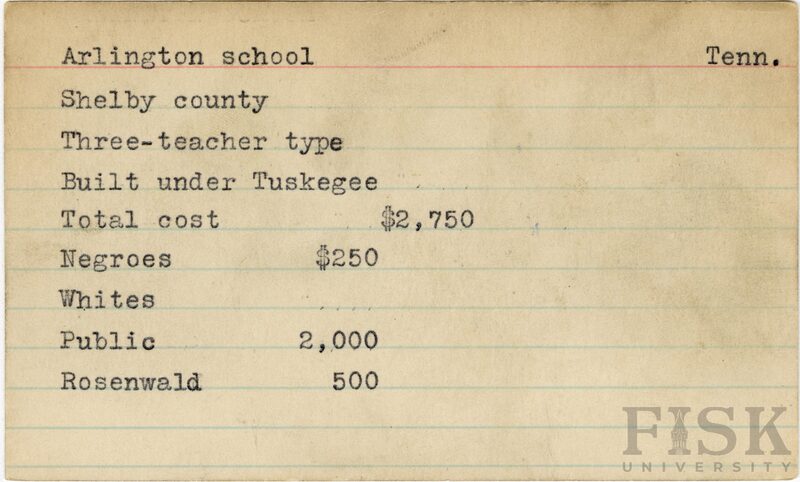 Arlington school Tenn.
Shelby county
Three-teacher type
Built under Tuskegee
Total cost $2,750
Negroes $250
Whites
Public 2,000
Rosenwald 500
FISK
UNIVERSITY